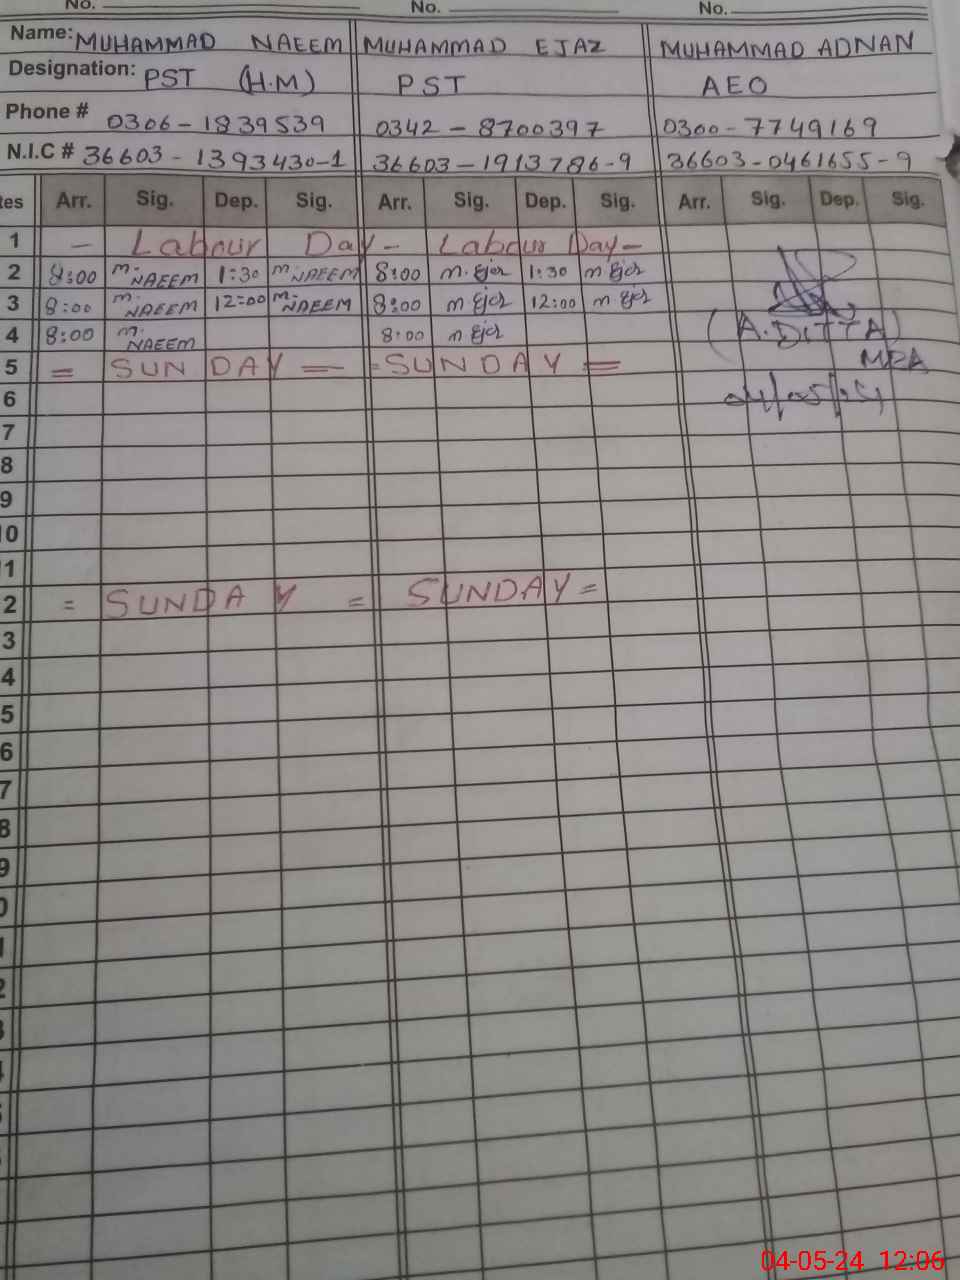 No. No. No.
Name: MUHAMMAD NAEEM MUHAMMAD EJAZ MUHAMMAD ADNAN
Designation: PST (H.M) PST AEO
Phone # 0306-1839539 0342-8700397 0300-7749169
N.I.C # 36603-1393430-1 36603-1913786-9 36603-0461655-9
tes Arr. Sig. Dep. Sig. Arr. Sig. Dep. Sig. Arr. Sig. Dep. Sig.
1 - Labour Day - Labour Day -
2 8:00 M. NAEEM 1:30 M. NAEEM 8:00 m. Ejaz 1:30 m Ejaz
3 8:00 M. NAEEM 12:00 M. NAEEM 8:00 m Ejaz 12:00 m Ejaz
4 8:00 M. NAEEM 8:00 m Ejaz (A.DITTA)
5 = SUNDAY = = SUNDAY = MEA
6 04/05/24
7
8
9
10
11
2 = SUNDAY = SUNDAY =
3
4
5
6
7
8
9
0
1
2
3
4
04-05-24 12:06